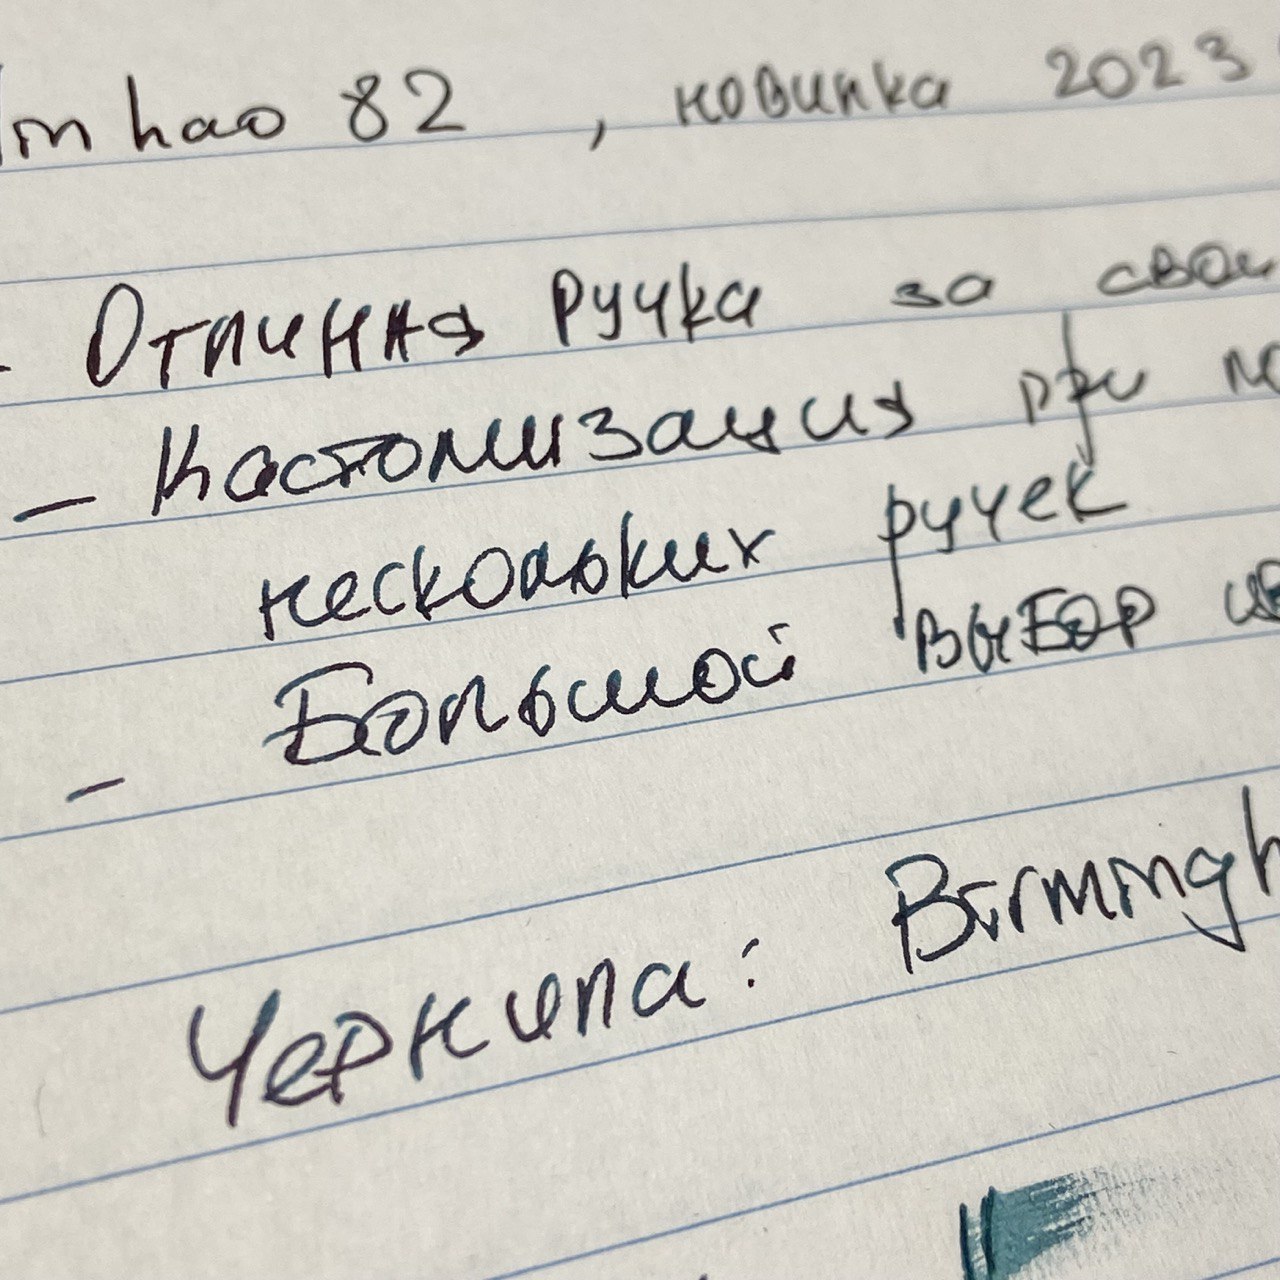 Jinhao 82, новинка 2023
- Отличная ручка за свои
- Кастомизация при по
нескольких ручек
- Большой выбор цв
Чернила: Birmingh